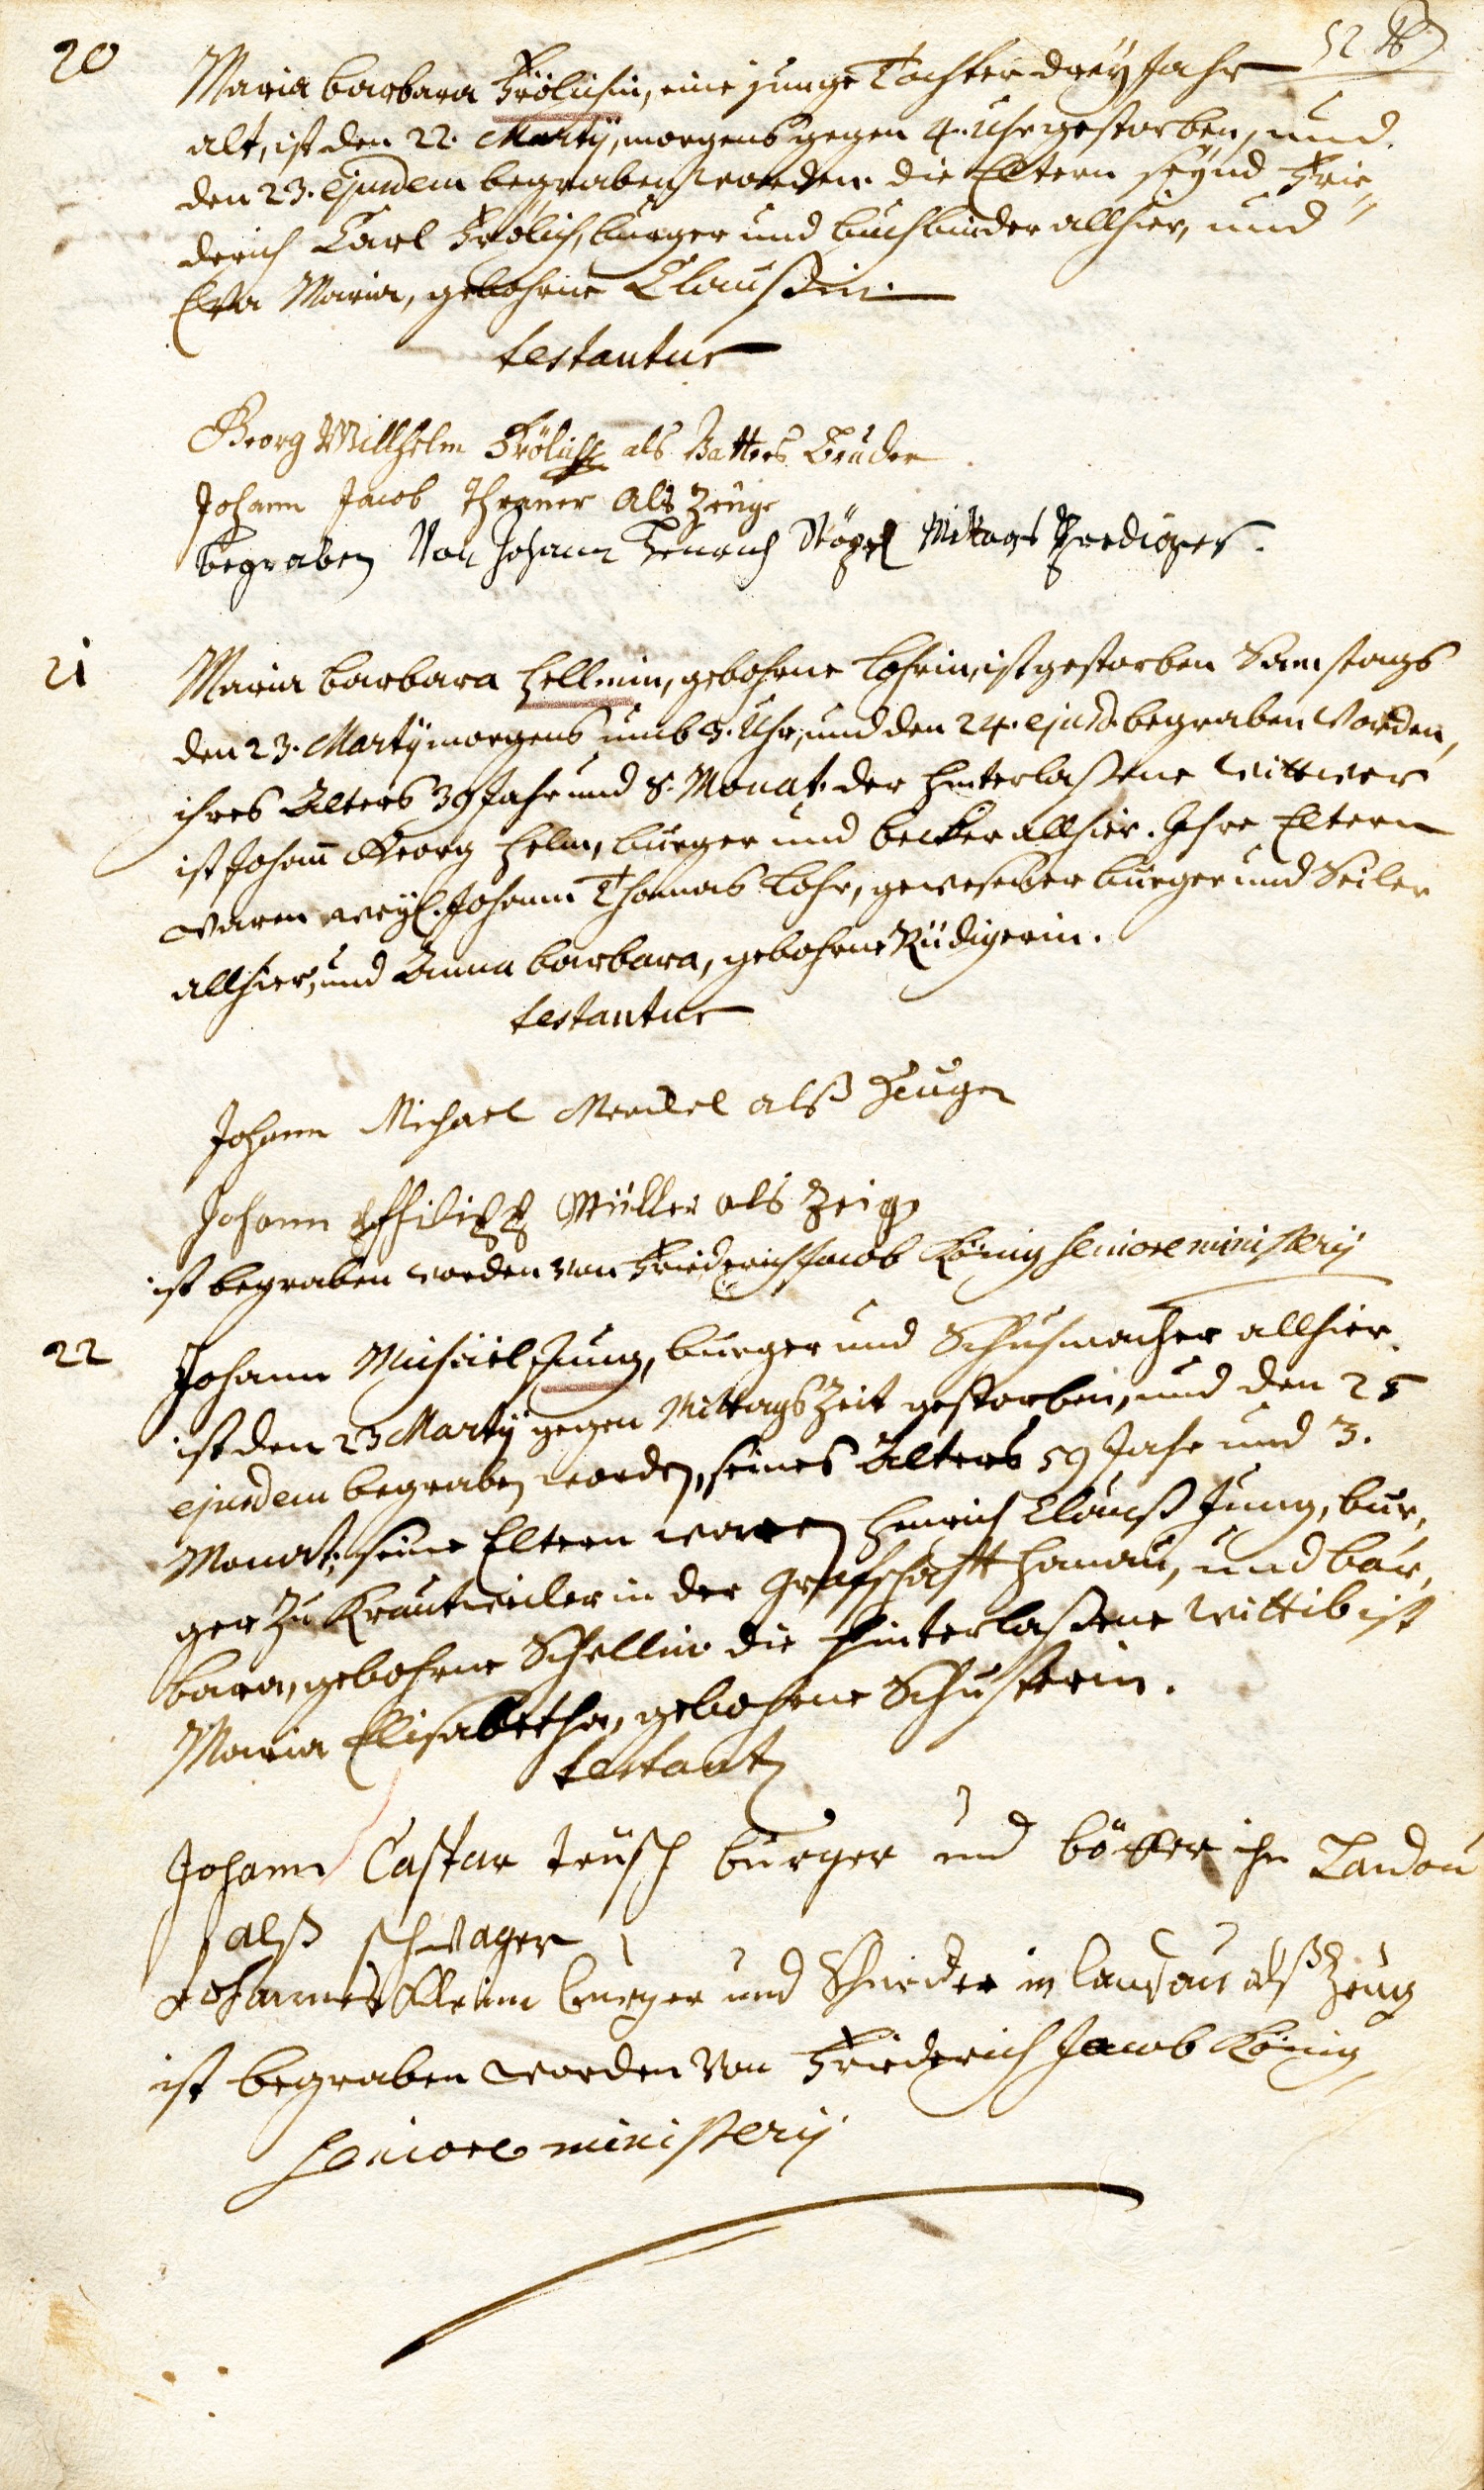 20
Maria Barbara Frölichin, eine junge Tochter drey Jahr
alt, ist den 22. Martÿ, morgens gegen 4. Uhr gestorben, und
den 23. ejusdem begraben worden. die Eltern seÿnd Frie,,
derich Carl Frölich, burger und buchbinder allhier, und
Eva Maria, gebohrne Claußin.
testantur
Georg Willhelm Frölich als Vatters Bruder
Johann Jacob als Zeuge
begraben Von Johann Henrich Mittags Prediger.
21
Maria Barbara Hellmin, gebohrne Lohrin, ist gestorben Samstags
den 23. Martÿ morgens umb 3. Uhr, und den 24. ejusd. begraben worden,
ihres Alters 39 Jahr und 8. Monat. der hinterlaßene wittwer
ist Johann Georg Helm, burger und becker allhier. Ihre Eltern
waren weyl. Johann Thomas Lohr, gewesener burger und Seiler
allhier, und Anna Barbara, gebohrne Rüdigerin.
testantur
Johann Michael alß Zeuge
Johann Philipp Müller als Zeig
ist begraben worden von Friederich Jacob König seniore ministerii
22
Johann Michäel Jung, burger und Schuhmacher allhier
ist den 23 Martÿ gegen Mittags Zeit gestorben, und den 25
ejusdem begraben worden, seines Alters 59 Jahr und 3.
Monat; seine Eltern waren Henrich Clauß Jung, bur,
ger zu Krautweiler in der Grafschafft Hanau, und bar,
bara, gebohrne Schellin. die hinterlaßene wittib ist
Maria Elisabetha, gebohrne Schusterin.
testant
Johann Caspar Teusch burger und böcker ihn Landau
alß schwager
Johannes Klein burger und Schneider in Landau alß Zeug
ist begraben worden von Friederich Jacob König,
seniore ministerii